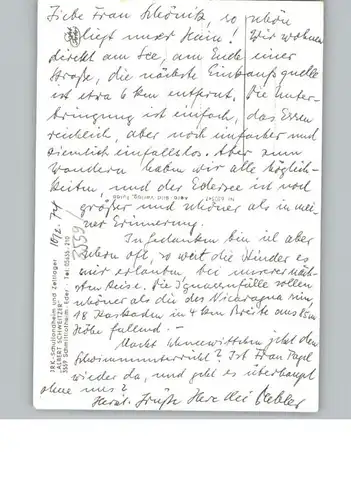 Liebe Frau Schönitz, so schön
liegt unser Heim! Wir wohnen
direkt am See, am Ende einer
Straße, die nächste Einkaufsquelle
ist etwa 6 km entfernt. Die Unter-
bringung ist einfach, das Essen
reichlich, aber noch einfacher und
ziemlich einfallslos. Aber zum
Wandern haben wir alle Möglich-
keiten, und der Edersee ist noch
größer und schöner als in mei-
ner Erinnerung.
In Gedanken bin ich aber
schon oft, so weit die Kinder es
mir erlauben bei unserer näch-
sten Reise. Die Iguassufälle sollen
schöner als die des Niehragua sein,
18 Kaskaden in 4 km Breite aus 85 m
Höhe fallend. –
Macht Schneewittchen jetzt den
Schwimmunterricht? Ist Frau
wieder da, und geht es überhaupt
ohne uns?
Herzl. Grüße Ihre
JRK-Schullandheim und Zeltlager
"ALBERT SCHWEITZER"
Tel. 05635-210
1092.74
3559